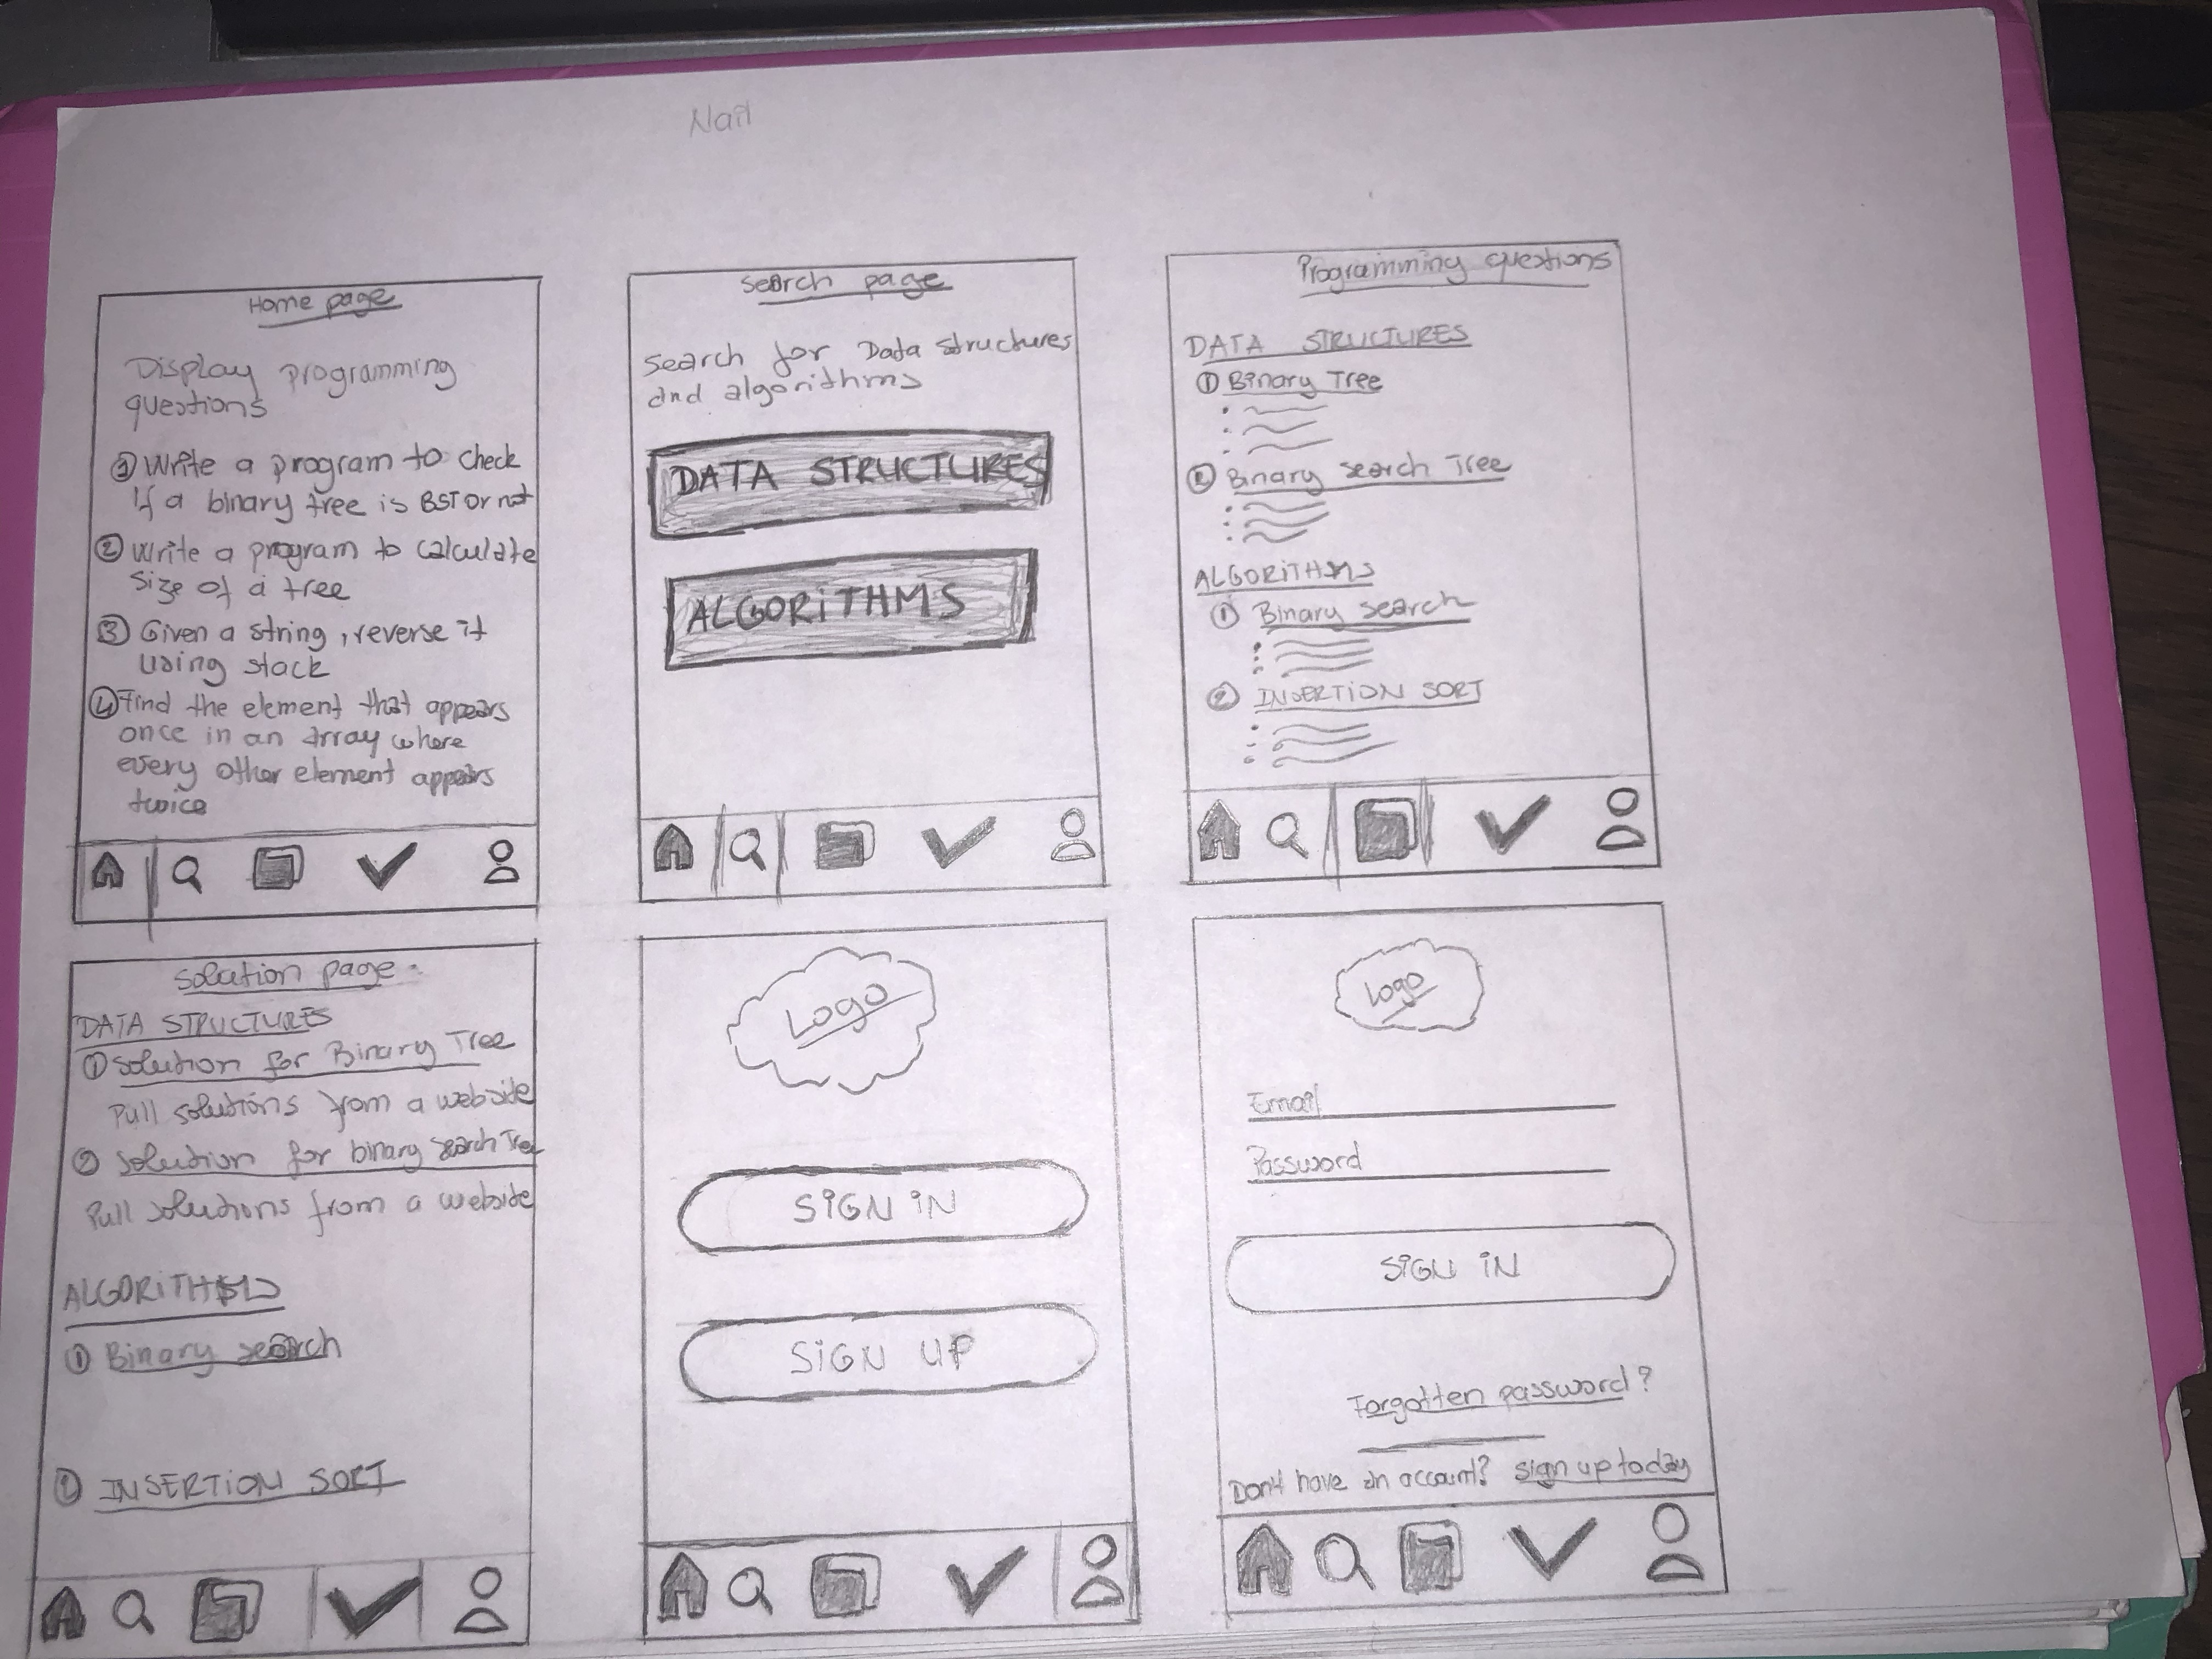 Nail
Home page
Display programming
questions
① Write a program to check
if a binary tree is BST or not
② Write a program to calculate
size of a tree
③ Given a string, reverse it
using stack
④ Find the element that appears
once in an array where
every other element appears
twice
Search page
Search for Data structures
and algorithms
DATA STRUCTURES
ALGORiTHMS
Programming questions
DATA STRUCTURES
① Binary Tree
② Binary search Tree
ALGORiTHMS
① Binary search
② INSERTiON SORT
Solution page
DATA STRUCTURES
① Solution for Binary Tree
Pull solutions from a website
② Solution for binary search Tree
Pull solutions from a website
ALGORiTHMS
① Binary search
② INSERTiON SORT
Logo
SiGN iN
SiGN UP
Logo
Email
Password
SiGN iN
Forgotten password?
Don't have an account? Sign up today